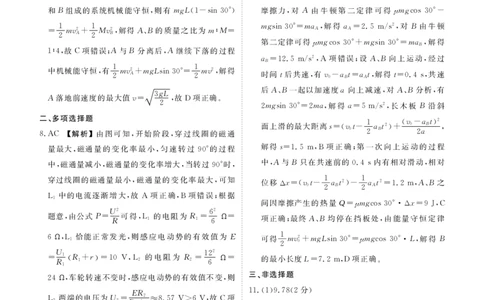 和 B 组成的系统机械能守恒,则有 mgL(1-sin 30°)
=1/2 mv_A^2+1/2 Mv_B^2,解得 A、B 的质量之比为 m∶M=
1∶4,故 C 项错误;A 与 B 分离后,A 继续下落的过程
中机械能守恒,有 1/2 mv_A^2+mgLsin 30°=1/2 mv^2,得
A 落地前速度的最大值 v=√(3gL/2),故 D 项正确。
二、多项选择题
8. AC 【解析】由图可知,开始阶段,穿过线圈的磁通
量最大,磁通量的变化率最小,匀速转过 90°的过程
中,磁通量减小,磁通量的变化率增大,当转过 90°时,
穿过线圈的磁通量最小,磁通量的变化率最大,可知
L₁ 中的电流逐渐增大,故 A 项正确,B 项错误;根据
题意,由公式 P=U²/R 可得,L₁ 的电阻为 R₁=6²/6 Ω=
6 Ω,L₁ 恰能正常发光,则感应电动势的有效值为 E
=U₁/R₁(R₁+r)=10 V,L₂ 的电阻为 R₂=12²/6 Ω=
24 Ω,车轮转速不变时,感应电动势的有效值不变,则
L₂ 两端的电压为 U₂= ≈8.57 V>6 V,故 C 项
摩擦力,对 A 由牛顿第二定律可得 μmgcos 30°-
mgsin 30°=ma_A,解得 a_A=2.5 m/s²,对 B 由牛顿
第二定律可得 μmgcos 30°+mgsin 30°=ma_B,解得
a_B=12.5 m/s²,A 项错误;设 A、B 向上运动,经过
时间 t 后共速,有 v₀-a_Bt=a_At,解得 t=0.4 s,共速
后 A、B 一起以加速度 a 向上减速,对 A、B 分析,有
2mgsin 30°=2ma,解得 a=5 m/s²,长木板 B 沿斜
面上滑的最大距离 s=(v₀t-1/2 a_Bt²)+(v₀-a_Bt)²/2a,
解得 s=1.5 m,B 项正确;第一次向上运动的过程
中,A 与 B 只在共速前的 0.4 s 内有相对滑动,相对
位移 Δx=(v₀t-1/2 a_Bt²)-1/2 a_At²=1.2 m,A、B 之
间因摩擦产生的热量 Q=μmgcos 30°·Δx=9 J,C
项正确;最终 A、B 均停在挡板处,由能量守恒定律
可得 1/2 mv₀²+mgLsin 30°=μmgcos 30°·L,解得 B
的最小长度 L=7.2 m,D 项正确。
三、非选择题
11. (1)9.78(2 分)